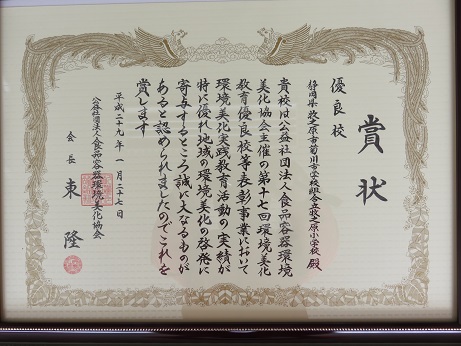 賞状
優良校
静岡県 牧之原市菊川市学校組合立牧之原小学校 殿
貴校は公益社団法人食品容器環境
美化協会主催の第十七回環境美化
教育優良校等表彰事業において
環境美化実践教育活動の実績が
特に優れ地域の環境美化の啓発に
寄与するところ誠に大なるものが
あると認められましたのでこれを
賞します
平成二十九年一月二十七日
公益社団法人食品容器環境美化協会
会長 東 隆